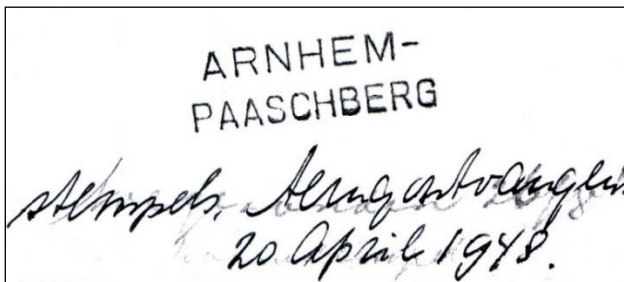 ARNHEM-
PAASCHBERG
stempels. terugontvangen
20 April 1948.